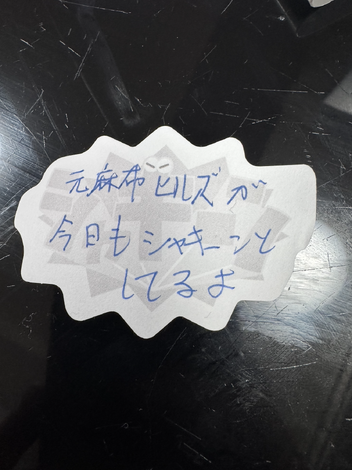 元麻布ヒルズが
今日もシャキーンと
してるよ